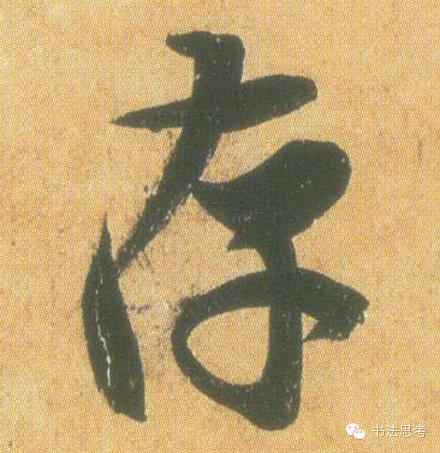 存
书法思考